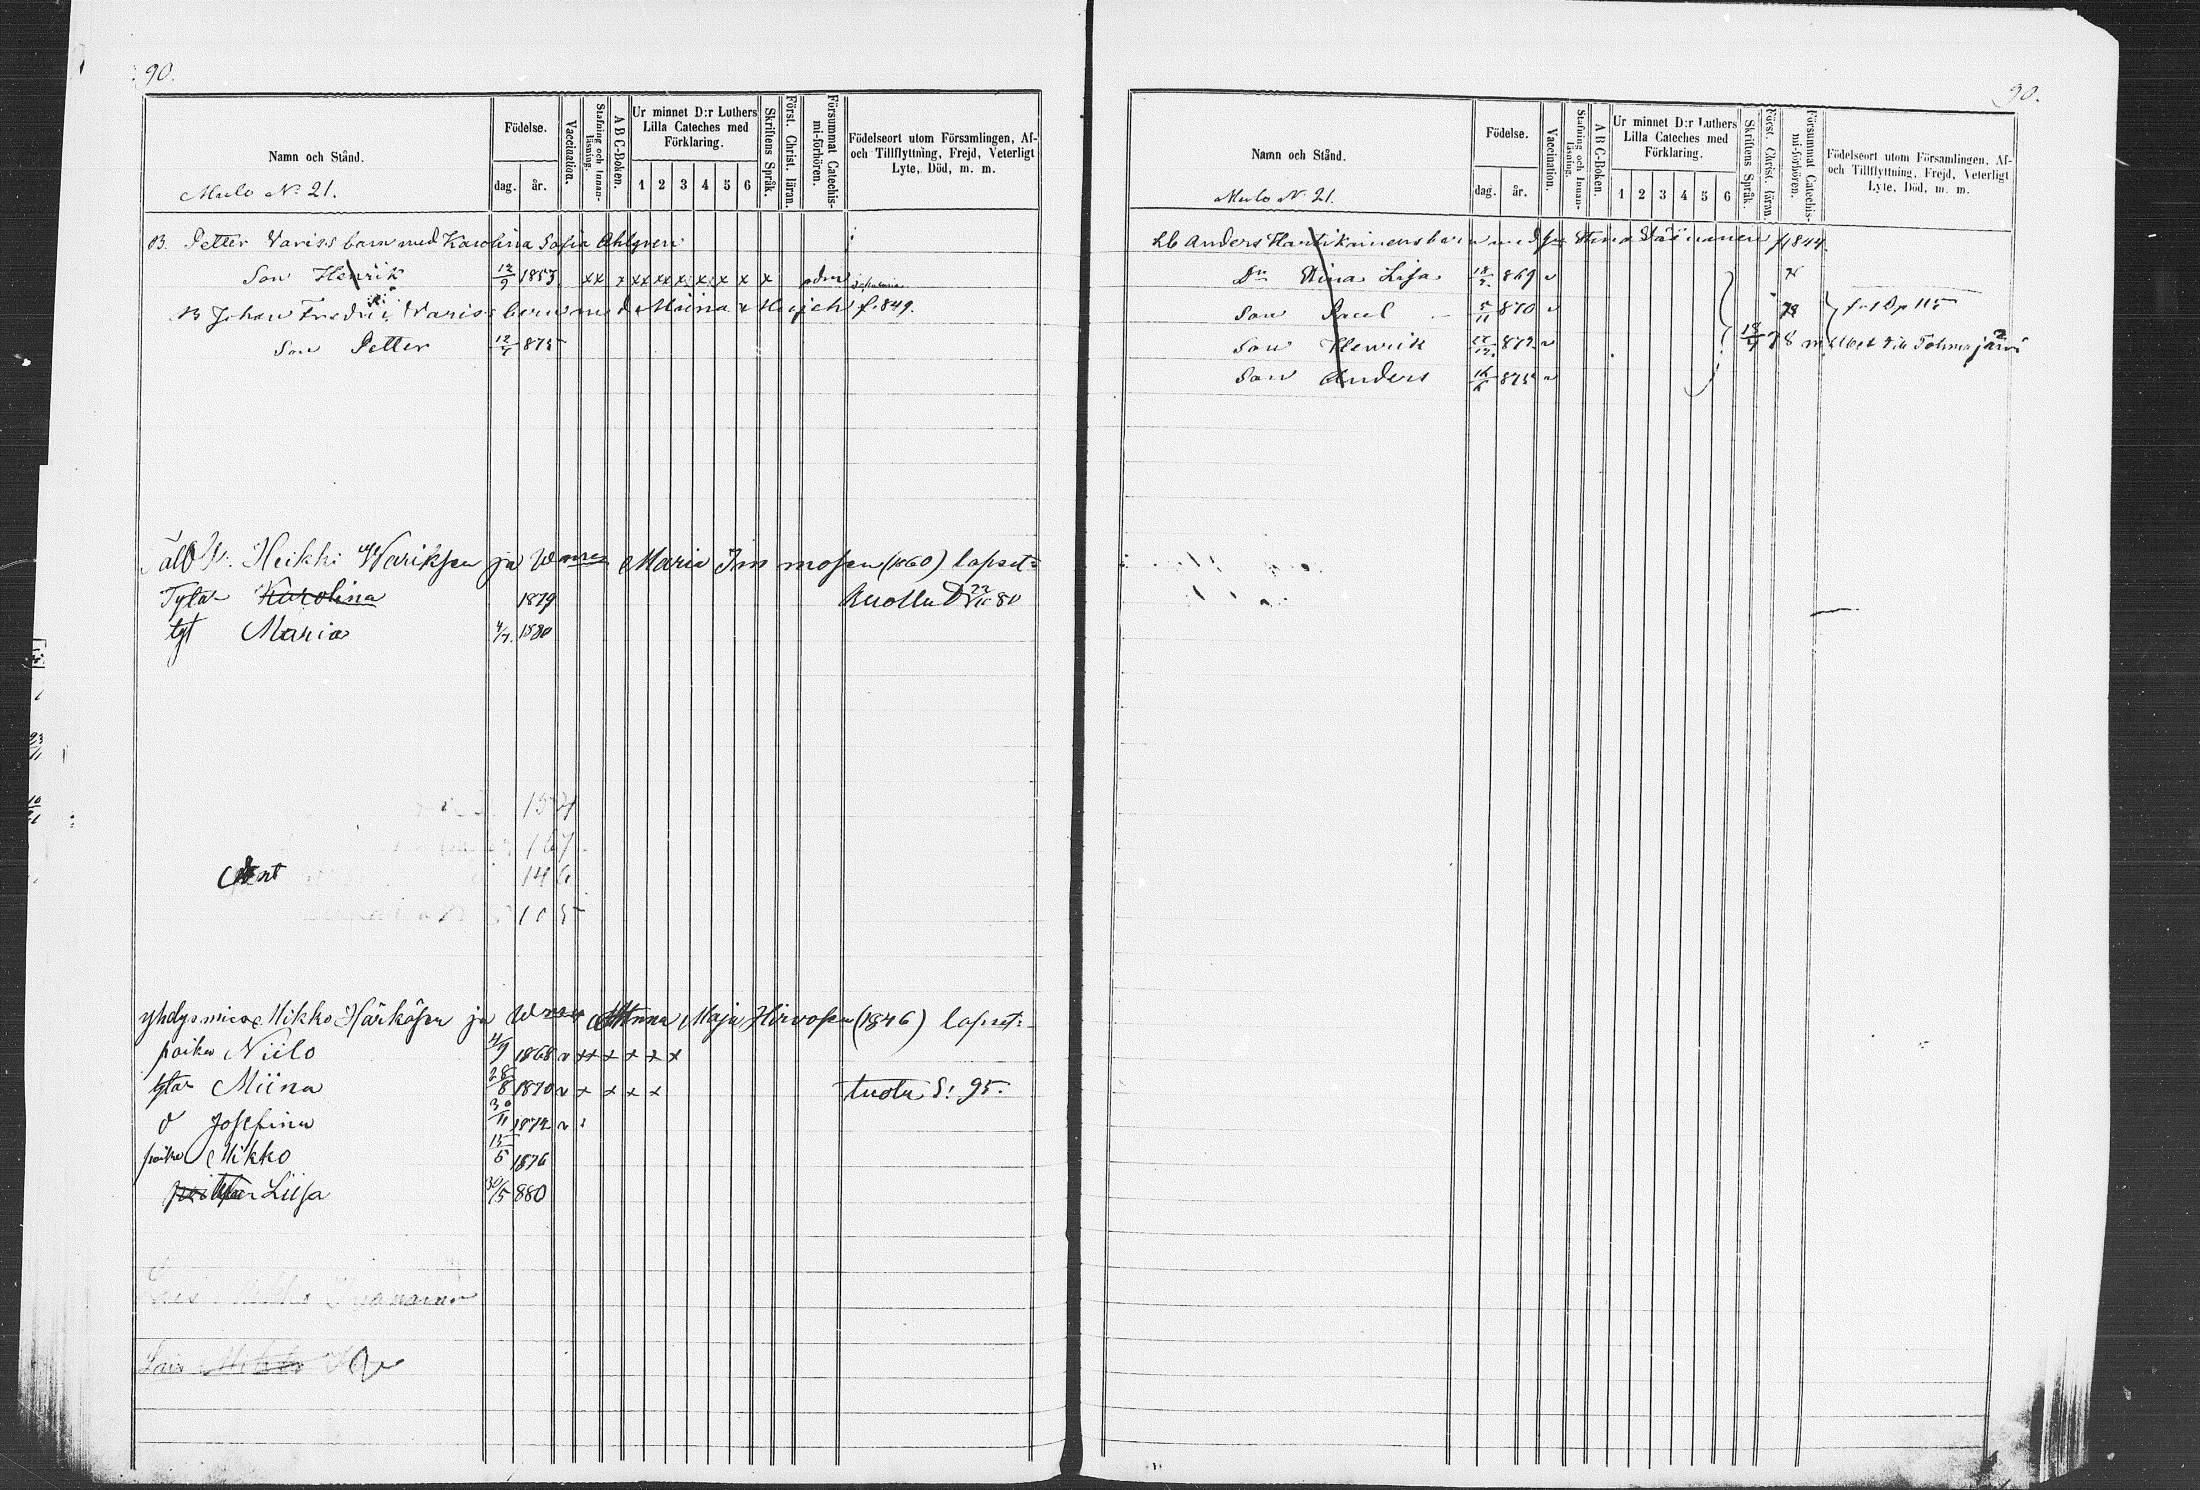 90.
Namn och Stånd.
Mulo N:o 21.
Födelse.
dag. år.
Vaccination.
Stafning och Innan-läsning.
A B C-Boken.
Ur minnet D:r Luthers Lilla Cateches med Förklaring.
1 2 3 4 5 6
Skriftens Språk.
Först. Christ. läran.
Försummat Catechis-mi-förhören.
Födelseort utom Församlingen, Af- och Tillflyttning, Frejd, Veterligt Lyte, Död, m. m.
B. Petter Variss barn med Karolina Sofia Ahlgren
Son Henrik 12/9 1853 xx x xx xx x x x x x
B Johan Fredric Variss barn med Miina f. 849.
Son Petter 875
Heikki Wariksen ja Maria Immosen (1860) lapset:
Tytär Karolina 1879 Kuollu 80
tyt Maria 4/7. 1880
154
167.
146
105
yhdysmies Mikko Härkösen ja Anna Maja Hirvosen (1846) lapset:
poika Niilo 1868 v xx x x x x
tytär Miina 28/8 1870 v x x x x tuotu S: 95.
d Josefina 30/11 1872 v
poika Mikko 15/6 1876
tytär Liisa 30/5 880
90.
Namn och Stånd.
Mulo N. 21.
Födelse.
dag. år.
Vaccination.
Stafning och Innan-läsning.
A B C-Boken.
Ur minnet D:r Luthers Lilla Cateches med Förklaring.
1 2 3 4 5 6
Skriftens Språk.
Först. Christ. läran.
Försummat Catechis-mi-förhören.
Födelseort utom Församlingen, Af- och Tillflyttning, Frejd, Veterligt Lyte, Död, m. m.
Lb Anders Hartikainens barn med Stina Väisänen f 1844.
Dr Stina Lisa 869 v
Son Paul 5/11 870 v 78 p 115
Son Henrik 872 v 78 till Tohmajärvi
Son Anders 16/6 875 v